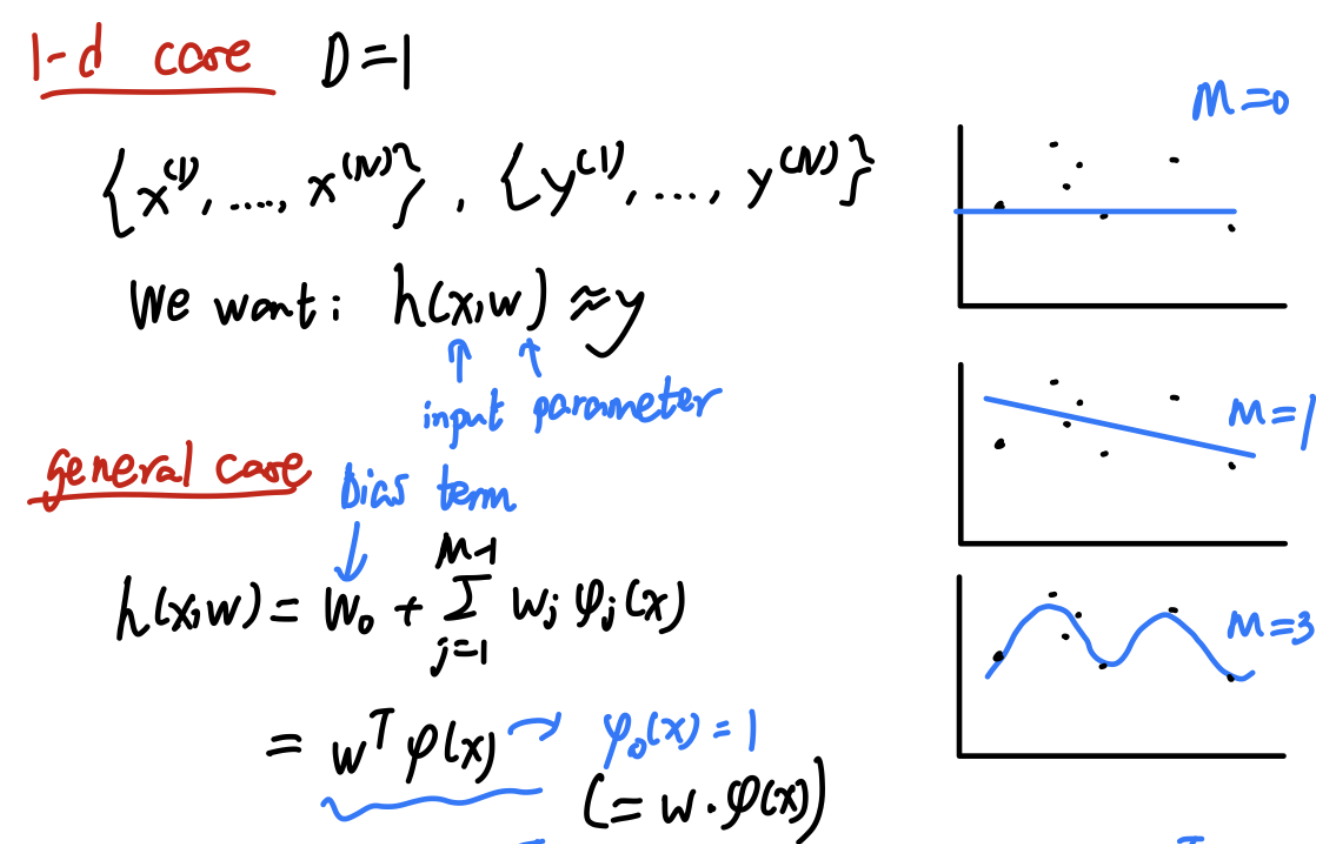 1-d case D=1
{x^(1), ...., x^(N)}, {y^(1), ...., y^(N)}
We want: h(x,w) ≈ y
input parameter
general case
bias term
h(x,w) = w₀ + Σ_{j=1}^{M-1} w_j φ_j(x)
= w^T φ(x) → φ₀(x) = 1
(= w · φ(x))
M=0
M=1
M=3